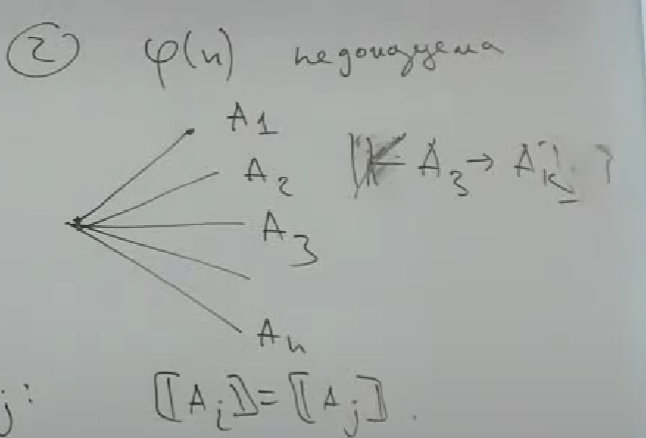 ② φ(n) недоказуема
A1
A2
⊩ A3 → Ak
A3
An
j: [[Ai]] = [[Aj]].